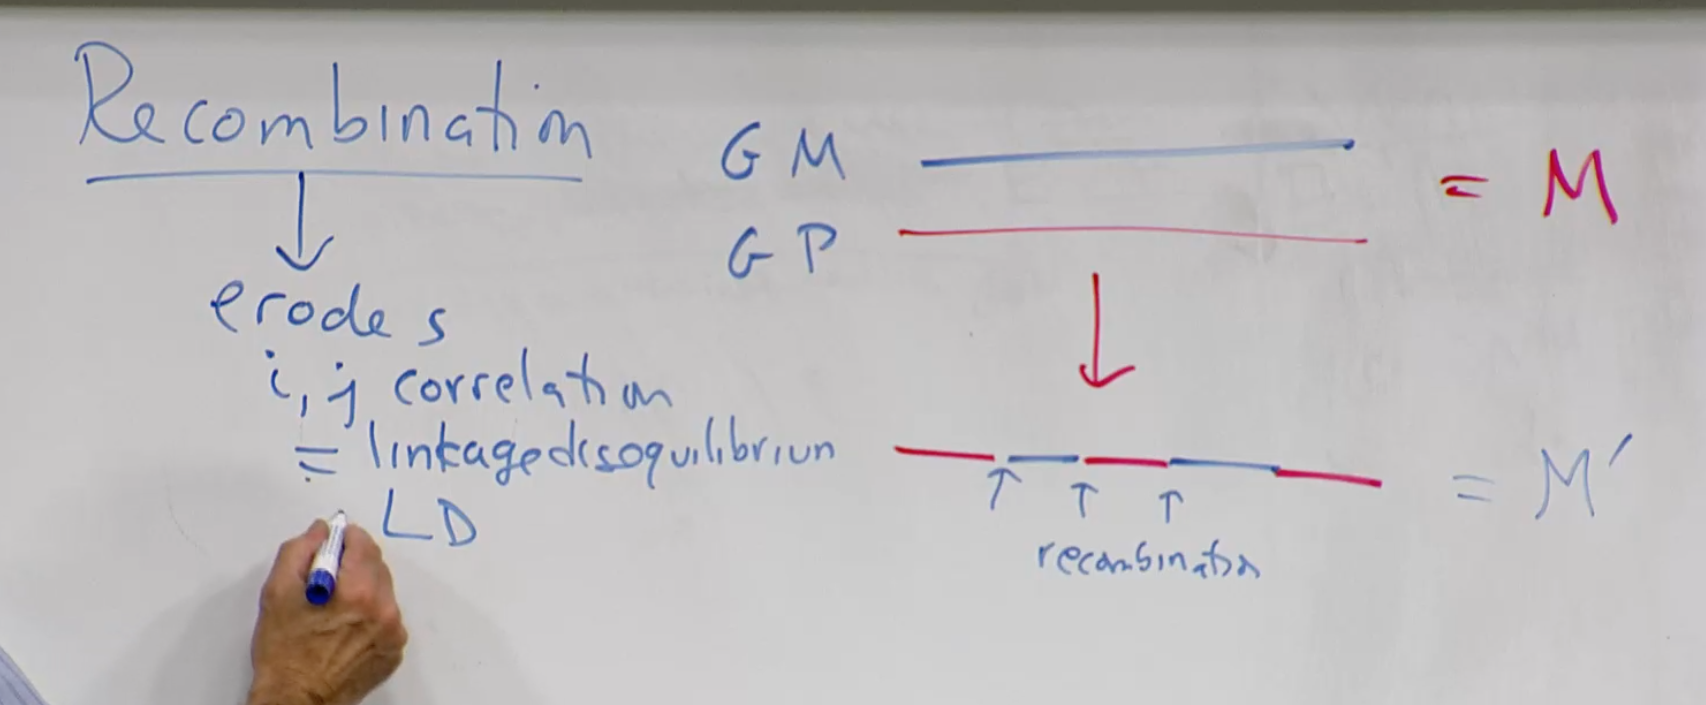 Recombination
erodes
i, j correlation
= linkage disequilibriun
LD
G M
= M
G P
= M′
recombination